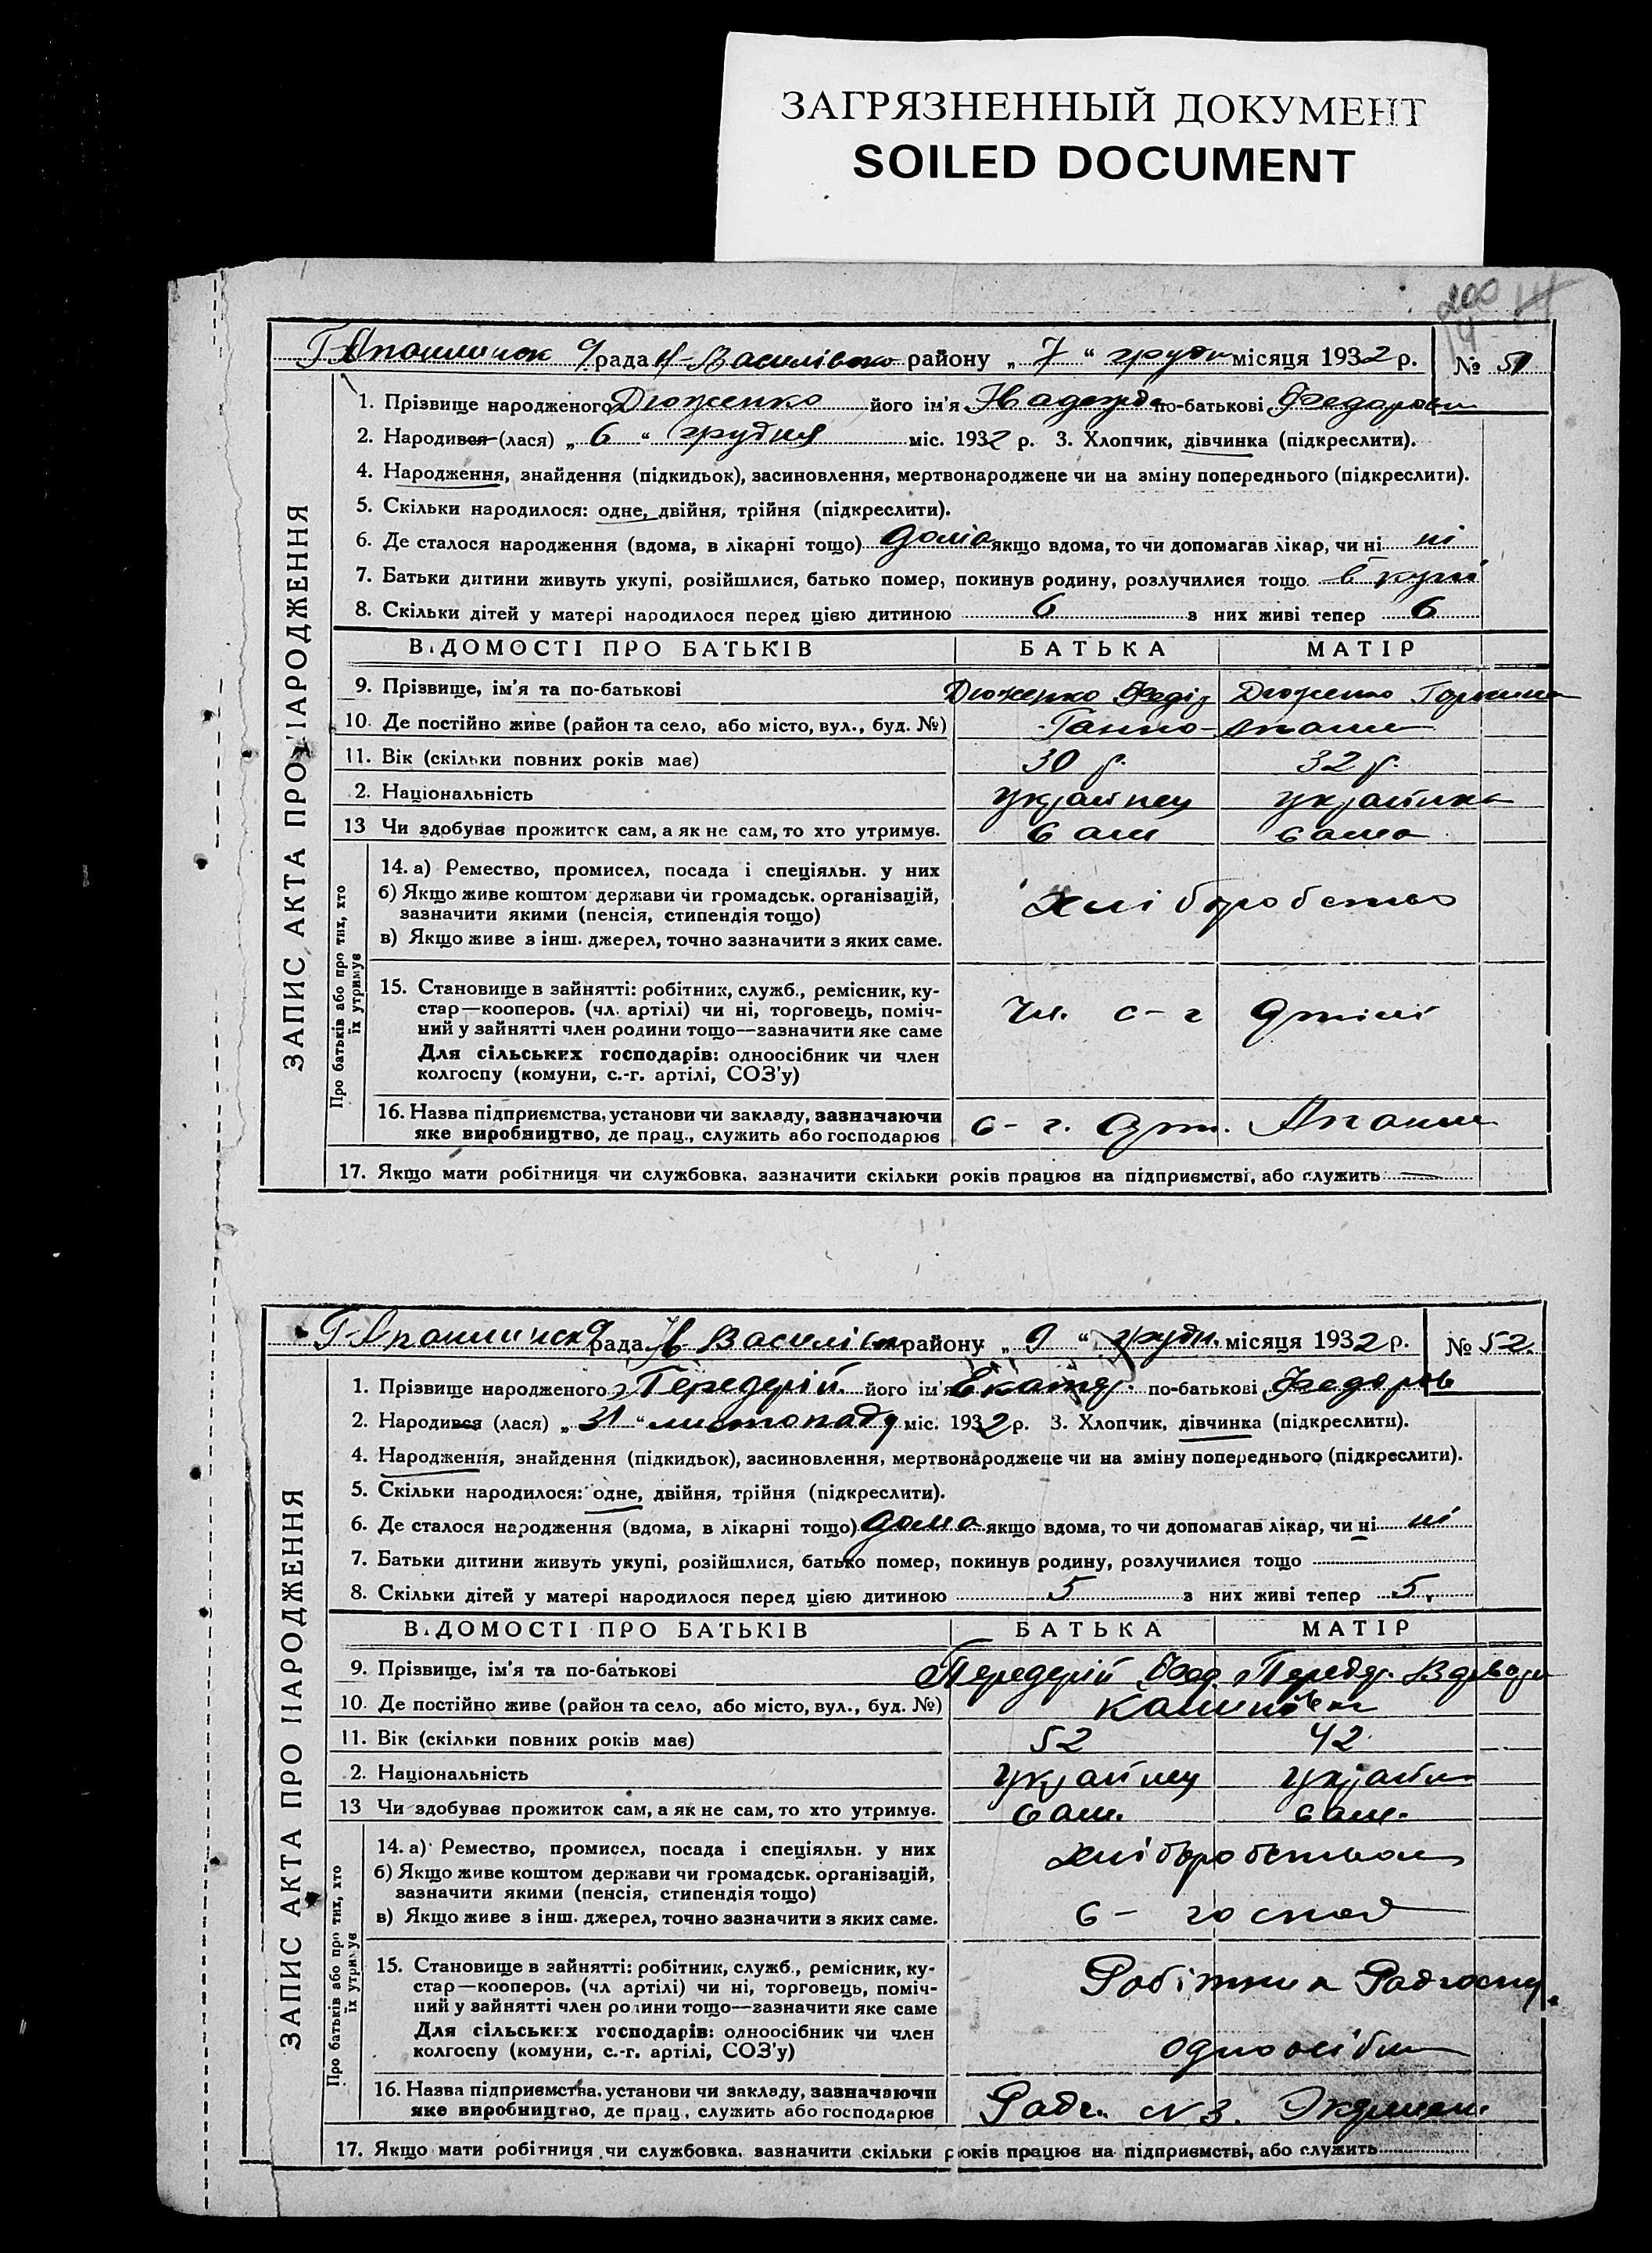 ЗАГРЯЗНЕННЫЙ ДОКУМЕНТ
SOILED DOCUMENT
200
14
рада Н-Василівсько району „ 7 “ грудн місяця 1932 р. № 51
1. Прізвище народженого Дюженко його ім'я Надежда по-батькові Федоровн
2. Народився (лася) „ 6 “ грудня міс. 1932 р. 3. Хлопчик, дівчинка (підкреслити).
4. Народження, знайдення (підкидьок), засиновлення, мертвонароджене чи на зміну попереднього (підкреслити).
5. Скільки народилося: одне, двійня, трійня (підкреслити).
6. Де сталося народження (вдома, в лікарні тощо) дома якщо вдома, то чи допомагав лікар, чи ні ні
7. Батьки дитини живуть укупі, розійшлися, батько помер, покинув родину, розлучилися тощо в купі
8. Скільки дітей у матері народилося перед цією дитиною 6 з них живі тепер 6
ВІДОМОСТІ ПРО БАТЬКІВ БАТЬКА МАТІР
9. Прізвище, ім'я та по-батькові Дюженко Федір Дюженко
10. Де постійно живе (район та село, або місто, вул., буд. №) Ганно-
11. Вік (скільки повних років має) 30 р. 32 р.
2. Національність українец українка
13 Чи здобував прожиток сам, а як не сам, то хто утримує. сам сама
14. а) Ремество, промисел, посада і спеціяльн. у них
б) Якщо живе коштом держави чи громадськ. організацій,
зазначити якими (пенсія, стипендія тощо) хліборобство
в) Якщо живе з інш. джерел, точно зазначити з яких саме.
15. Становище в зайнятті: робітник, служб., ремісник, ку-
стар—кооперов. (чл. артілі) чи ні, торговець, поміч- Чл. с-г артілі
ний у зайнятті член родини тощо—зазначити яке саме
Для сільських господарів: одноосібник чи член
колгоспу (комуни, с.-г. артілі, СОЗ'у)
16. Назва підприємства, установи чи закладу, зазначаючи
яке виробництво, де прац., служить або господарює с-г. арт.
17. Якщо мати робітниця чи службовка, зазначити скільки років працює на підприємстві, або служить —
ЗАПИС АКТА ПРО НАРОДЖЕННЯ
Про батьків або про тих, хто
їх утримує
рада Н Василівськ району „ 9 “ грудн. місяця 1932 р. № 52.
1. Прізвище народженого Передерій його ім'я Екатер. по-батькові Федоров
2. Народився (лася) „ 31 “ листопаду міс. 1932 р. 3. Хлопчик, дівчинка (підкреслити).
4. Народження, знайдення (підкидьок), засиновлення, мертвонароджене чи на зміну попереднього (підкреслити).
5. Скільки народилося: одне, двійня, трійня (підкреслити).
6. Де сталося народження (вдома, в лікарні тощо) дома якщо вдома, то чи допомагав лікар, чи ні ні
7. Батьки дитини живуть укупі, розійшлися, батько помер, покинув родину, розлучилися тощо
8. Скільки дітей у матері народилося перед цією дитиною 5 з них живі тепер 5
ВІДОМОСТІ ПРО БАТЬКІВ БАТЬКА МАТІР
9. Прізвище, ім'я та по-батькові Передерій Фед. Передер.
10. Де постійно живе (район та село, або місто, вул., буд. №)
11. Вік (скільки повних років має) 52 42
2. Національність українец україн
13 Чи здобував прожиток сам, а як не сам, то хто утримує. сам. сам.
14. а) Ремество, промисел, посада і спеціяльн. у них
б) Якщо живе коштом держави чи громадськ. організацій,
зазначити якими (пенсія, стипендія тощо)
в) Якщо живе з інш. джерел, точно зазначити з яких саме. с- господ
15. Становище в зайнятті: робітник, служб., ремісник, ку-
стар—кооперов. (чл артілі) чи ні, торговець, поміч- Робітник Радгоспу.
ний у зайнятті член родини тощо—зазначити яке саме
Для сільських господарів: одноосібник чи член
колгоспу (комуни, с.-г. артілі, СОЗ'у) одноосібн
16. Назва підприємства, установи чи закладу, зазначаючи
яке виробництво, де прац., служить або господарює Радг. N 3.
17. Якщо мати робітниця чи службовка, зазначити скільки років працює на підприємстві, або служить
ЗАПИС АКТА ПРО НАРОДЖЕННЯ
Про батьків або про тих, хто
їх утримує